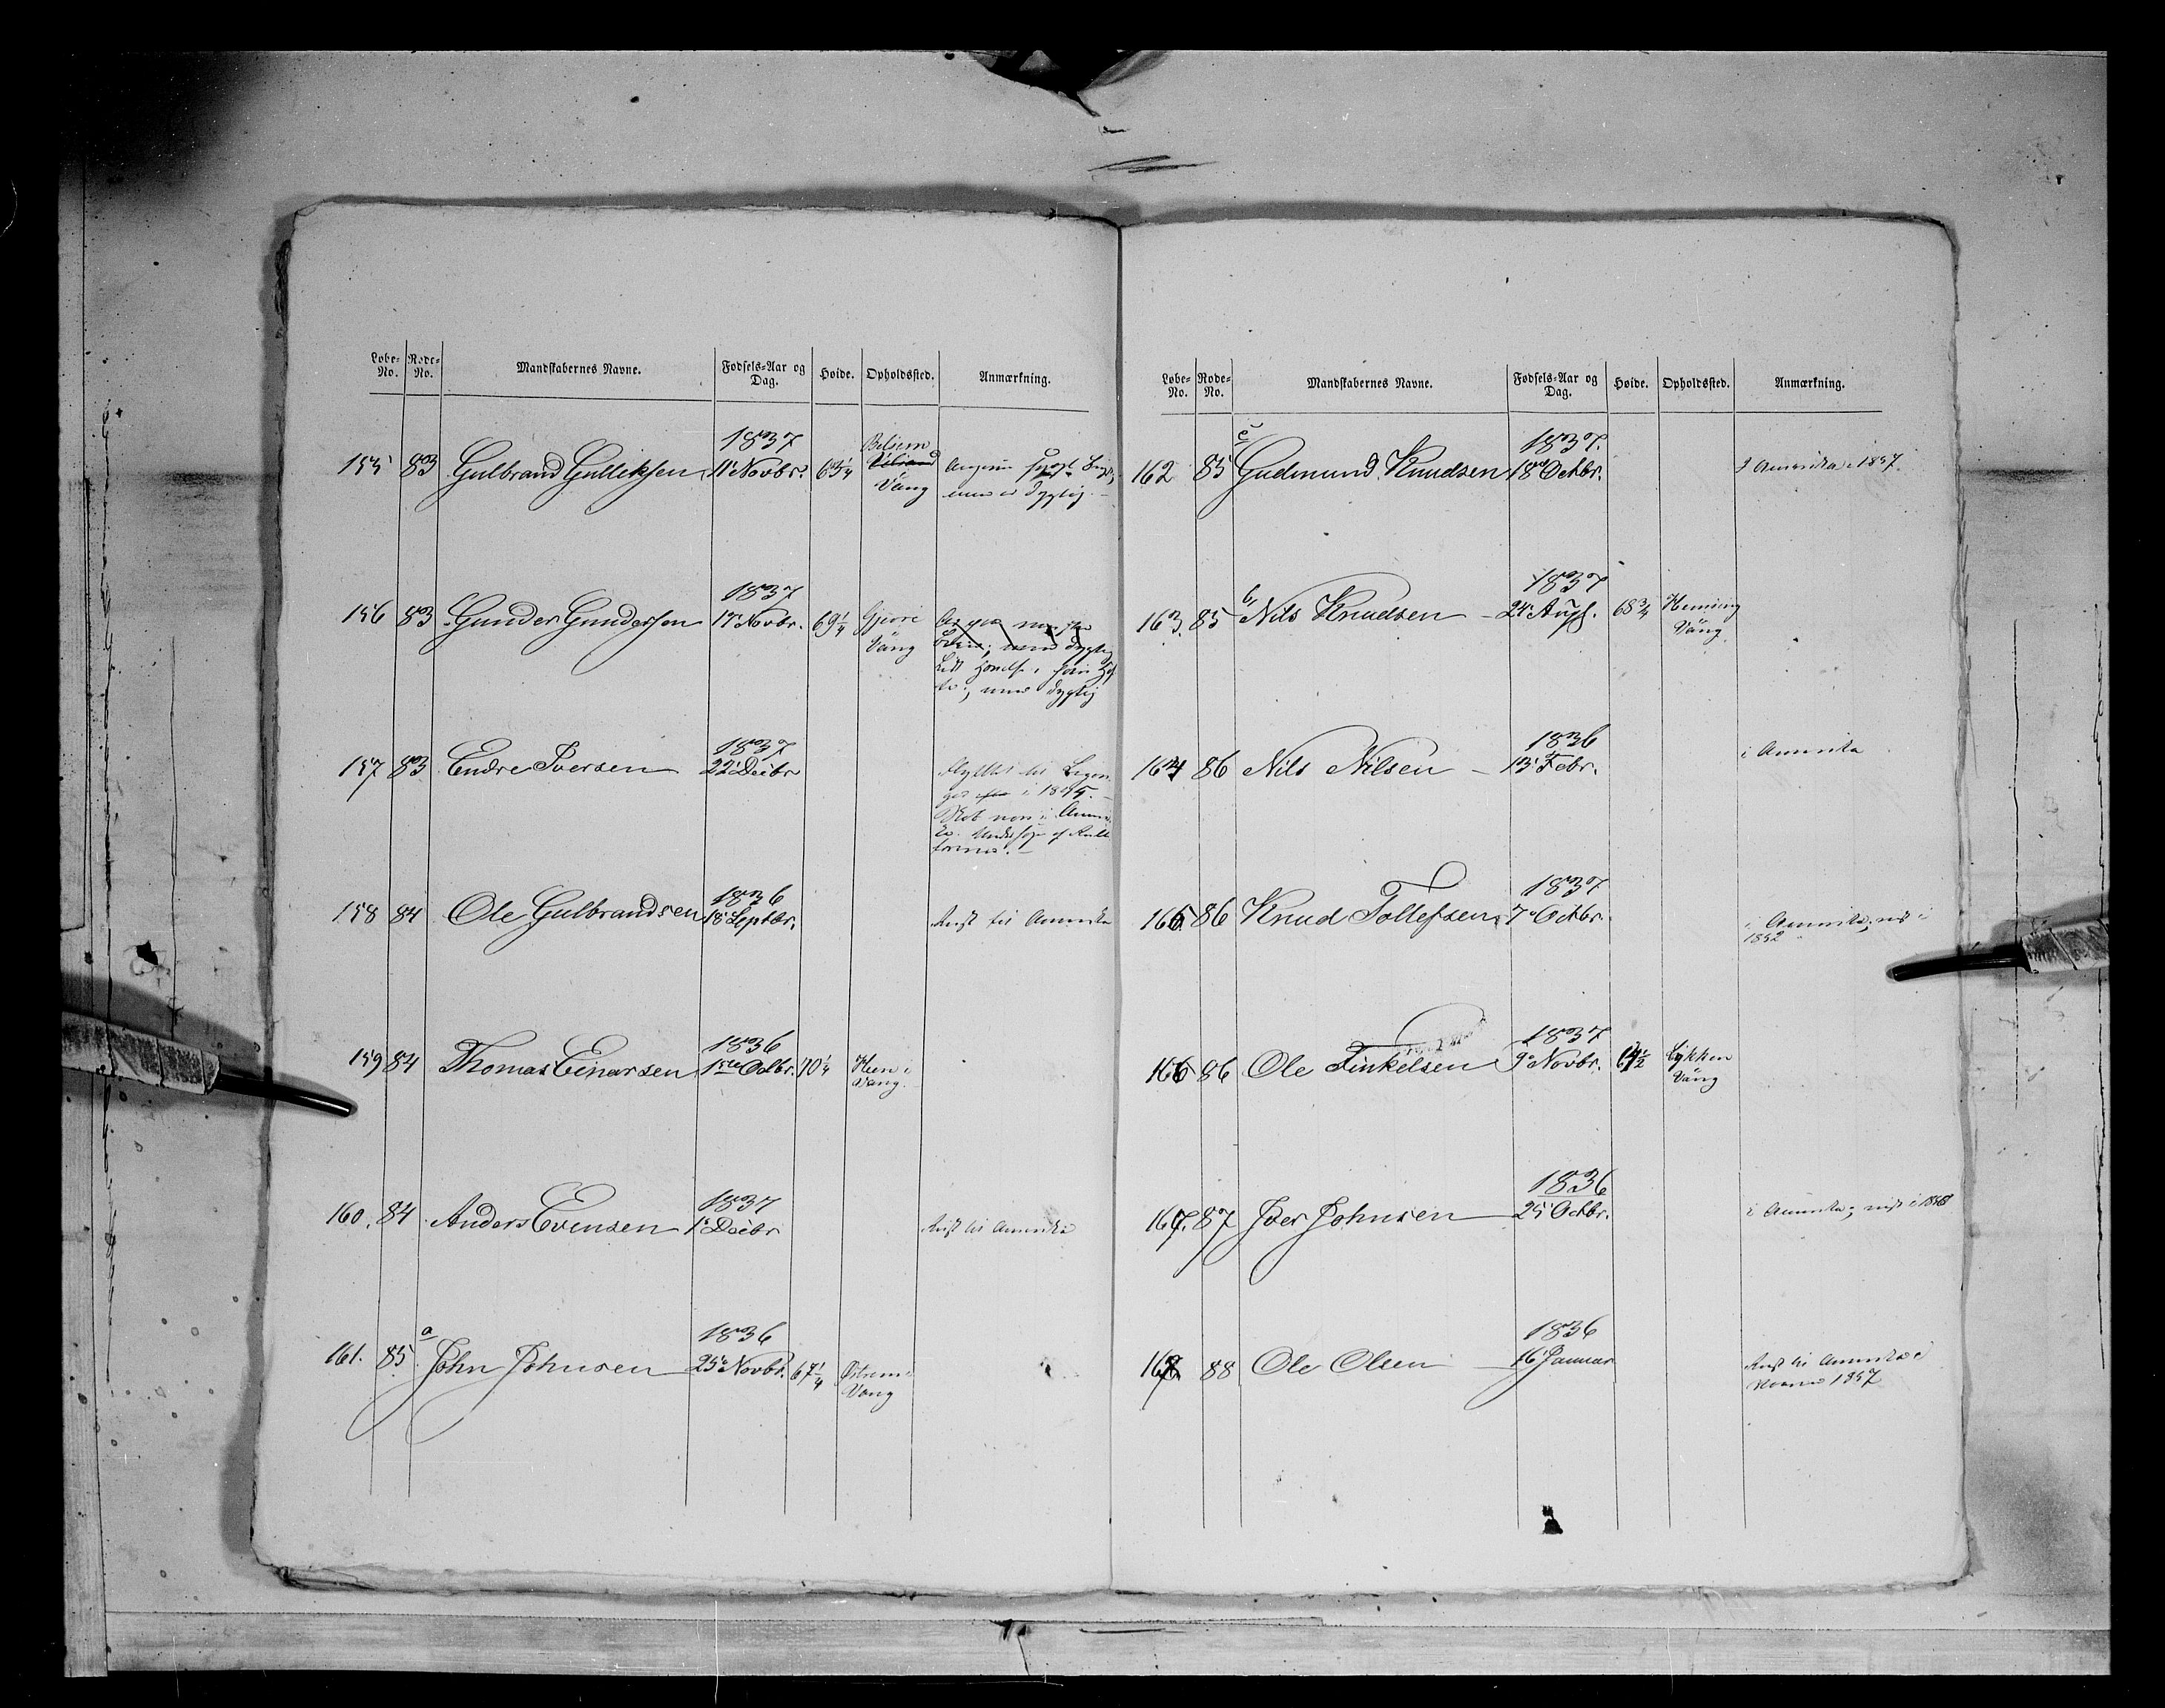 Løbe-No. Rode-No. Mandskabernes Navne. Fødsels-Aar og Dag. Høide. Opholdssted. Anmærkning.
155 83 Gulbrand Gulleksen 1837 11' Novbr. 63 1/4 Vang men er dygtig.
156 83 Gunder Gundersen 1837 17' Novbr. 69 1/4 Vang men dygtig
men dygtig
157 83 Endre Iversen 1837 22' Decbr
i 1845.
158 84 Ole Gulbrandsen 1836 18' Septbr. Reist til Amerika
159 84 Thomas Einarsen 1836 1ste Octbr. 70 1/4 Heen i
Vang.
160. 84 Anders Evensen 1837 1' Decbr Reist til Amerika
161. 85. a John Johnsen 1836 25' Novbr. 67 1/4 Østrem i
Vang
Løbe-No. Rode-No. Mandskabernes Navne. Fødsels-Aar og Dag. Høide. Opholdssted. Anmærkning.
162 85 c Gudmund Knudsen 1837. 18' Octbr. I Amerika 1857.
163. 85 b, Nils Knudsen 1837 24' Aug. 68 3/4 Heming
Vang
164 86 Nils Nilsen 1836 13' Febr. i Amerika
165 86 Knud Tollefsen 1837 7' Octbr. i Amerika; reist i
1852
166 86 Ole Tinkelsen 1837 9' Novbr. Løkken
Vang
167. 87 Iver Johnsen 1836 25' Octbr. i Amerika; reist i
168. 88 Ole Olsen 1836 16' Januar Reist til Amerika i
1857